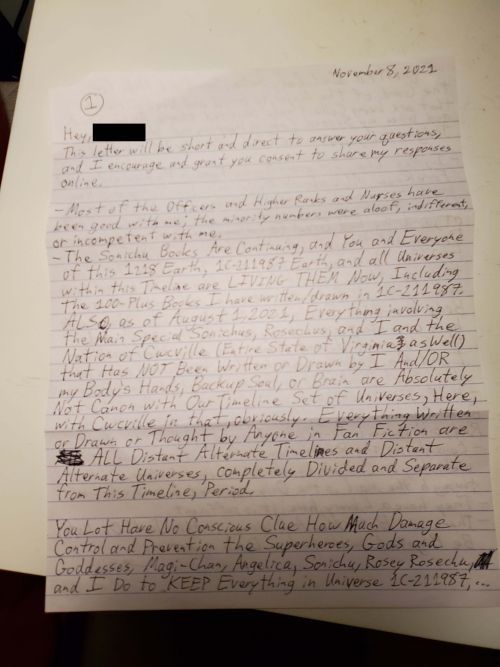 November 8, 2021
1
Hey,
This letter will be short and direct to answer your questions,
and I encourage and grant you consent to share my responses
online.
- Most of the Officers and Higher Ranks and Nurses have
been good with me; the minority numbers were aloof, indifferent,
or incompetent with me.
- The Sonichu Books Are Continuing, and You and Everyone
of this 1218 Earth, 1C-211987 Earth, and all Universes
within this Timeline are LIVING THEM Now, Including
the 100-Plus Books I have written/drawn in 1C-211987.
ALSO, as of August 1, 2021, Everything involving
the Main Special Sonichus, Rosechus, and I and the
Nation of Cwcville (Entire State of Virginia as Well)
that Has NOT Been Written or Drawn by I And/OR
my Body's Hands, Backup Soul, or Brain are Absolutely
Not Canon with Our Timeline Set of Universes, Here,
with Cwcville in that, obviously. Everything Written
or Drawn or Thought by Anyone in Fan Fiction are
ALL Distant Alternate Timelines and Distant
Alternate Universes, completely Divided and Separate
from This Timeline, Period.
You Lot Have No Conscious Clue How Much Damage
Control and Prevention the Superheroes, Gods and
Goddesses, Magi-Chan, Angelica, Sonichu, Rosey Rosechu,
and I Do to KEEP Everything in Universe 1C-211987,...